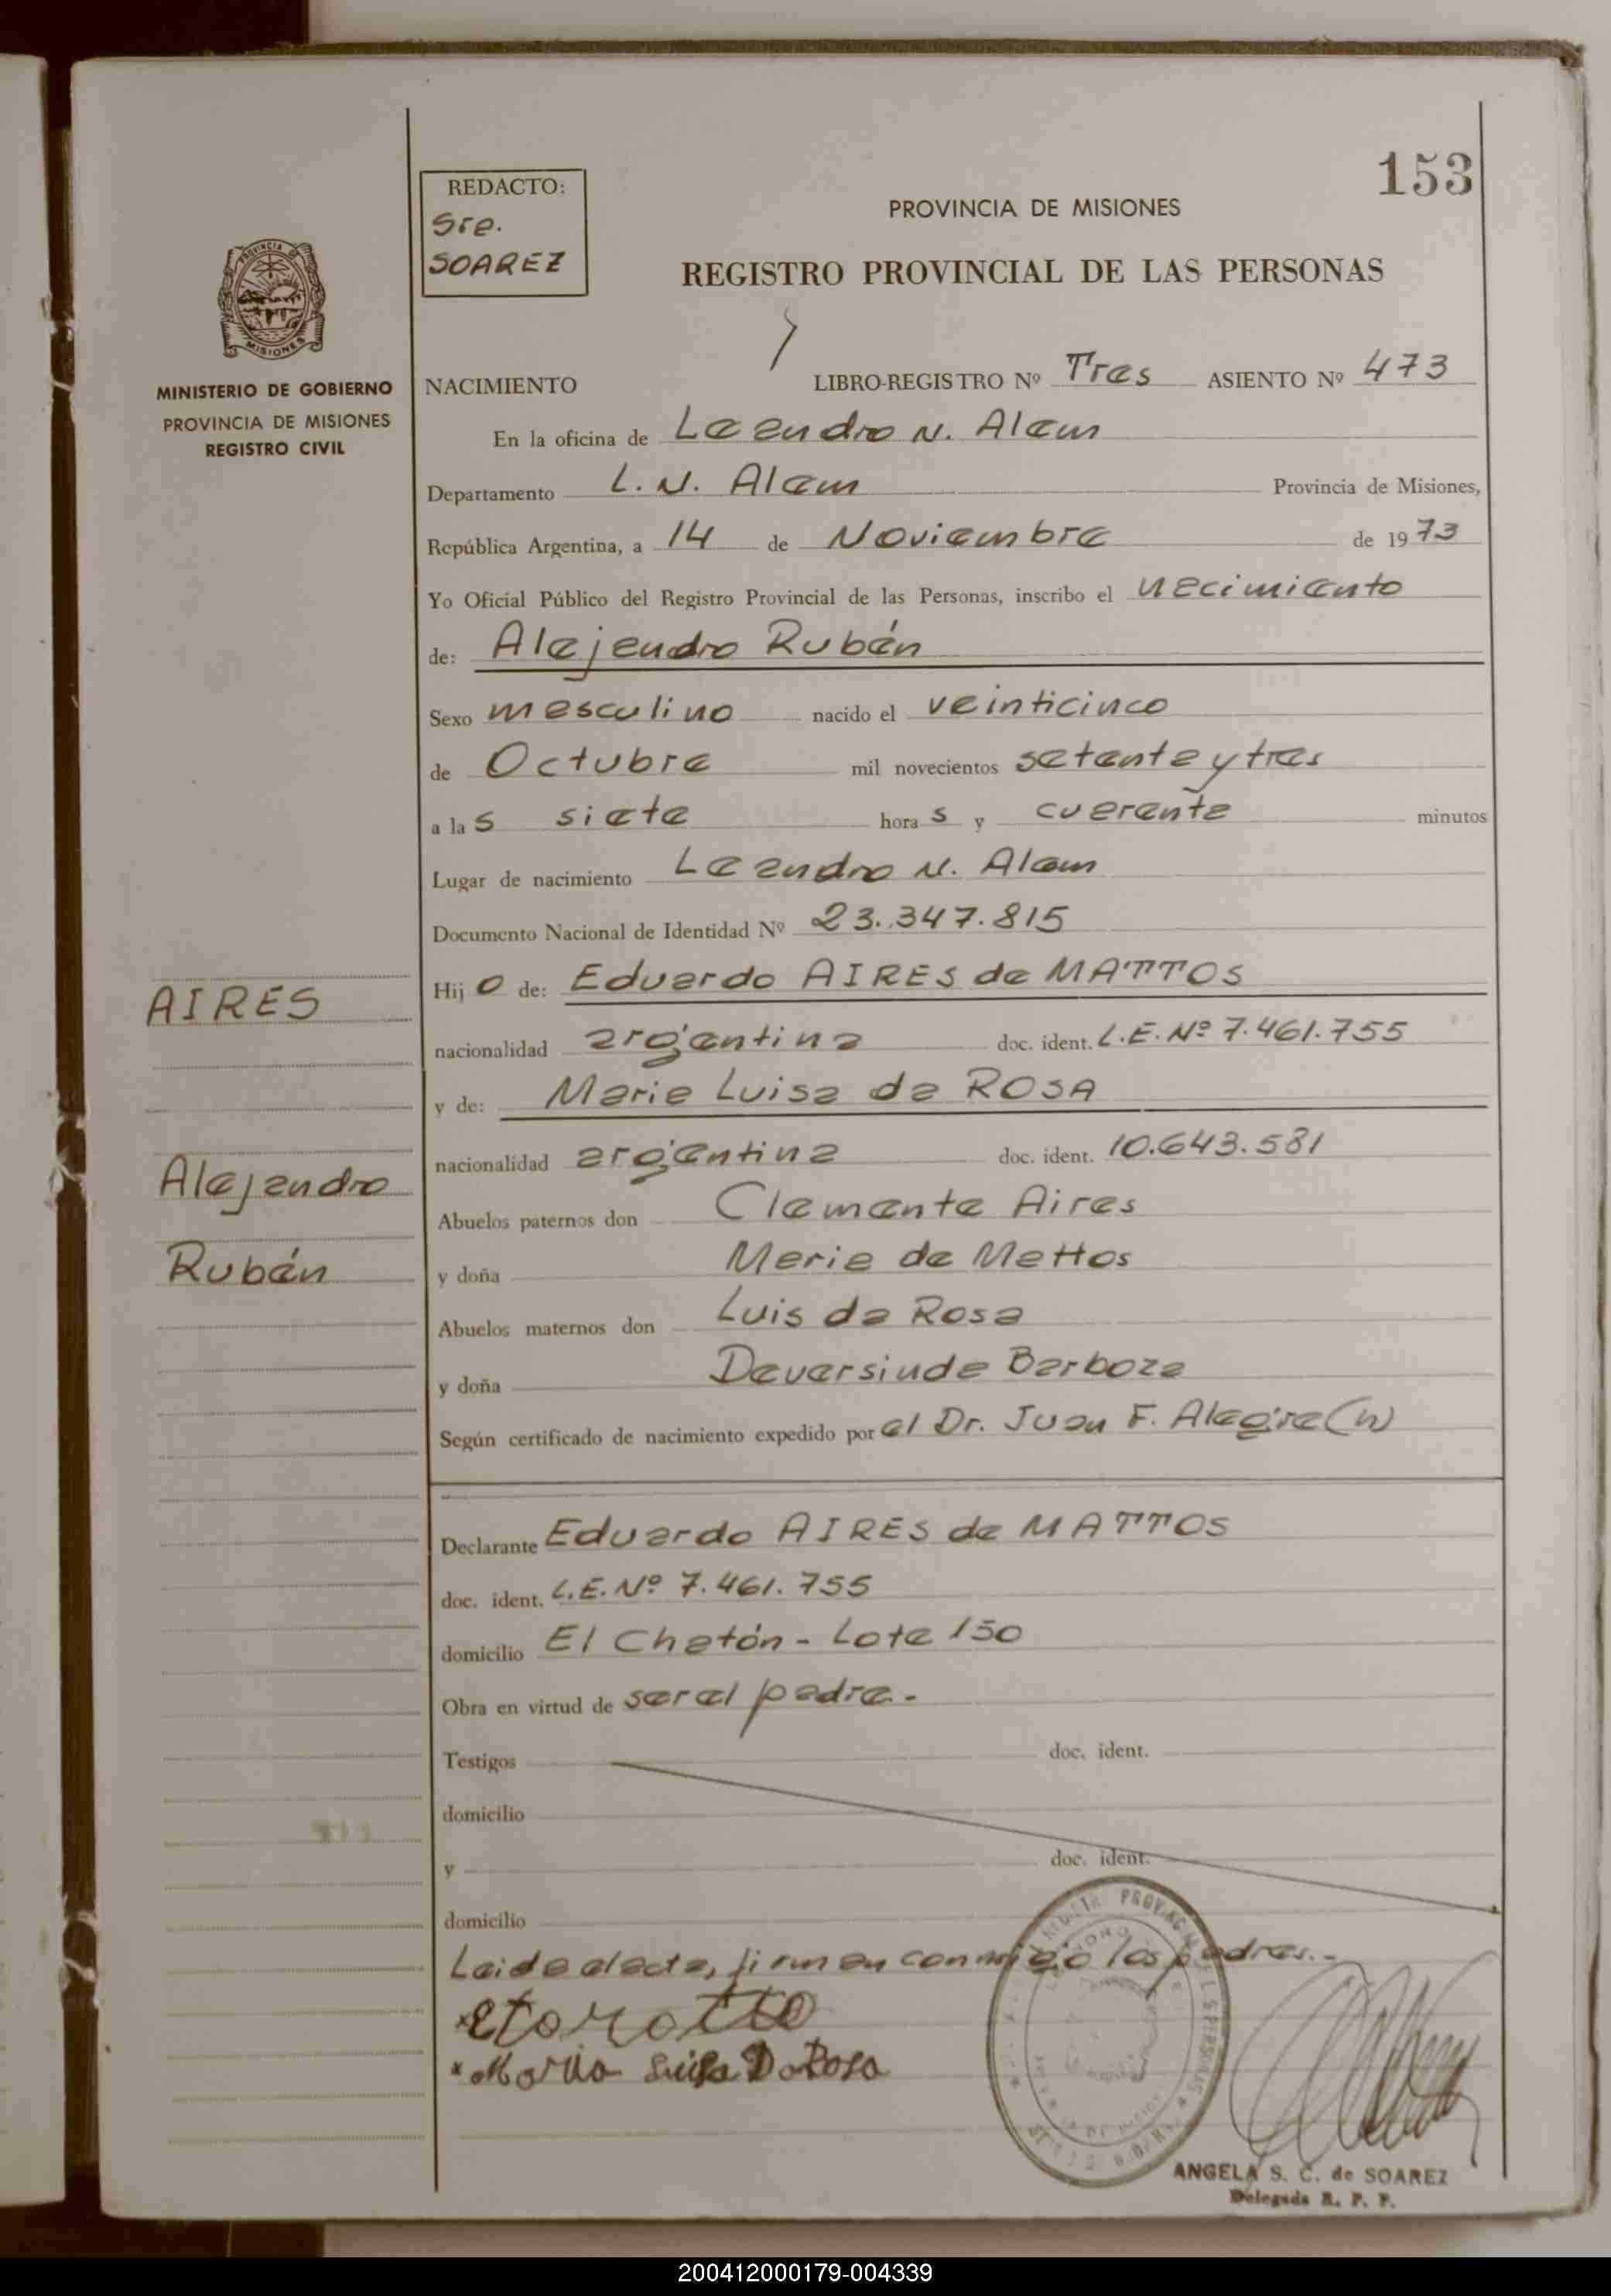 153
REDACTO:
Sra.
SOAREZ
PROVINCIA DE MISIONES
REGISTRO PROVINCIAL DE LAS PERSONAS
PROVINCIA
MISIONES
MINISTERIO DE GOBIERNO
PROVINCIA DE MISIONES
REGISTRO CIVIL
NACIMIENTO LIBRO-REGISTRO Nº Tres ASIENTO Nº 473
En la oficina de Leandro N. Alem
Departamento L. N. Alem Provincia de Misiones,
República Argentina, a 14 de Noviembre de 1973
Yo Oficial Público del Registro Provincial de las Personas, inscribo el nacimiento
de: Alejandro Rubén
Sexo masculino nacido el veinticinco
de Octubre mil novecientos setenta y tres
a las siete horas y cuarenta minutos
Lugar de nacimiento Leandro N. Alem
Documento Nacional de Identidad Nº 23.347.815
Hijo de: Eduardo AIRES de MATTOS
nacionalidad argentina doc. ident. L.E. Nº 7.461.755
y de: Maria Luisa da ROSA
nacionalidad argentina doc. ident. 10.643.581
Abuelos paternos don Clemente Aires
y doña Maria de Mattos
Abuelos maternos don Luis da Rosa
y doña Deversinda Barboza
Según certificado de nacimiento expedido por el Dr. Juan F. Alegre (h)
AIRES
Alejandro
Rubén
Declarante Eduardo AIRES de MATTOS
doc. ident. L.E. Nº 7.461.755
domicilio El Chatón - Lote 150
Obra en virtud de ser el padre.-
Testigos doc. ident.
domicilio
y doc. ident.
domicilio
Leida el acta, firman conmigo los padres.-
x Maria Luisa Da Rosa
ANGELA S. C. de SOAREZ
Delegada R. P. P.
200412000179-004339